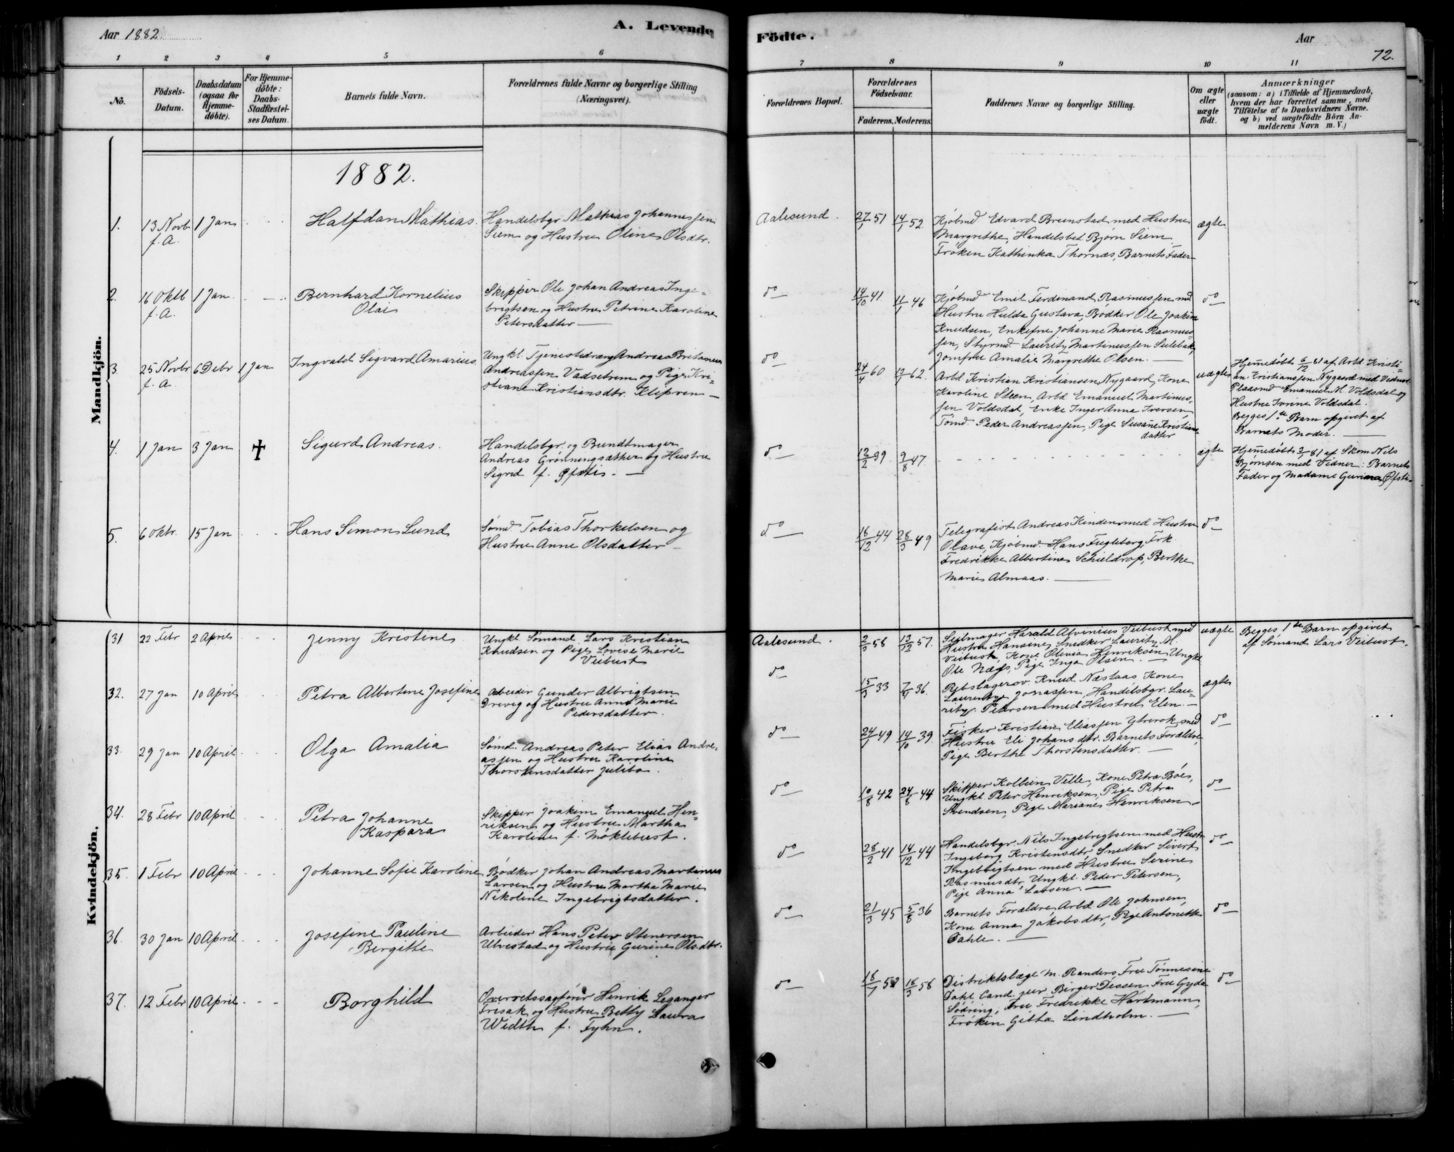 Aar 1882.
A. Levende Födte.
Aar
72.
1 2 3 4 5 6 7 8 9 10 11
No.
Födsels-
Datum.
Daabsdatum
(ogsaa for
Hjemme-
döbte).
For Hjemme-
döbte:
Daabs-
Stadfæstel-
ses Datum
Barnets fulde Navn.
Forældrenes fulde Navne og borgerlige Stilling
(Næringsvei).
Forældrenes Bopæl.
Forældrenes
Födselsaar.
Faderens. Moderens.
Faddernes Navne og borgerlige Stilling.
Om ægte
eller
uægte
födt.
Anmærkninger
(saasom: a) i Tilfælde af Hjemmedaab,
hvem der har forrettet samme, med
Tilföielse af to Daabsvidners Navne.
og b) ved uægtefödte Börn An-
melderens Navn m. V.)
Mandkjön.
1882.
1.
13 Novb
f. A.
1 Jan
Halfdan Mathias
Handelsbgr Mathias Johannessen
Siem og Hustru Oline Olsdtr.
Aalesund.
27/7 51
14/1 52
Kjøbmd Edvard Brunstad med Hustru
Margrethe, Handelsbet Bjørn Siem
Frøken Kathinka Thornæs, Barnets Fader
ægte
2.
16 Oktb
f. A.
1 Jan
Bernhard Kornelius
Olai
Skipper Ole Johan Andreas Inge-
brigtsen og Hustru Petrine Karoline
Petersdatter
do
14/10 41
11/1 46
Kjøbmd Emil Ferdinand Rasmussen med
Hustru Hulda Gustava, Bødker Ole Joakim
Knudsen, Enkefru Johanne Marie Rasmus-
sen, Styrmd Laurits Martinussen
Jomfru Amalie Margrethe Olsen.
do
3
25 Novbr
f. A
6 Debr
1 Jan
Ingvald Sigvard Amarius
Ungkl Tjenestedreng Andreas
Andreassen Vadsetrem og Pige Kri-
stiane Kristiansdtr. Klipren
do
24/4 60
62
Arbd Kristian Kristiansen Nygaard, Kone
Karoline Steen, Arbd Emanuel Martinus-
sen Voldsdal, Enke Inger Anna Iversen
Tomd Peder Andreassen, Pige Susane Kristians
datter
uægte
Hjemmedøbt 6/12 81 af Arbd Kristi-
an Kristianssen Nygaard med Vidner
Pladsmd Emanuel M. Voldsdal og
Hustru Iverine Voldsdal.
Begges 1ste Barn opgivet af
Barnets Moder.
4.
1 Jan
3 Jan
✝
Sigurd Andreas.
Handelsbgr og Bundtmager
Andreas Grønningsæther og Hustru
Sigrid f. Øfstis.
do
12/2 39
9/8 47
ægte
Hjemmedøbt 3/1 81 af Skom Nils
Bjørnsen med Vidner: Barnets
Fader og Madame Gurina Øfsti
5.
6 oktr.
15 Jan
Hans Simon Lund
Sømd Tobias Thorkelsen og
Hustru Anne Olsdatter
do
16/12 44
28/3 49
Telegrafist Andreas Kinden med Hustru
Olave, Kjøbmd Hans Fuglebærg, Frk
Fredrikke Albertine Schieldrop, Berthe
Marie Almaas.
do
Kvindekjön.
31
22 Febr
2 April
Jenny Kristine
Ungkl Sømand Lars Kristian
Knudsen og Pige Lovise Marie
Viebust
Aalesund.
2/5 58
12/12 57.
Seilmager Harald Alvenius Viebust med
Hustru Hansine, Snedker Laurits M.
Viebust, Kone Olivia Henriksen, Ungkl
Ole Næss, Pige Inga Olsen.
uægte
Begges 1ste Barn opgivet
af Sømand Lars Viebust.
32.
27 Jan
10 April
Petra Albertine Josefine
Arbeider Gunder Albrigtsen
Drevig og Hustru Anne Marie
Pedersdatter.
do
15/3 33
7/6 36.
Rebslagersv. Knud Næstaas Kone
Laurentze Jonassen, Handelsbgr. Lau-
rits Petersen med Hustru Elen
ægte
33.
29 Jan
10 April
Olga Amalia
Sømd Andreas Peter Elias Andre-
assen og Hustru Karoline
Thorstensdatter Julibø.
do
24/1 49
14/10 39
Fisker Kristian Eliassen Ytrerok med
Hustru Eli Johansdtr. Barnets Forældre,
Pige Berthe Thorstensdatter.
do
34.
28 Febr
10 April
Petra Johanne
Kaspara
Skipper Joakim Emanuel Hen-
riksen og Hustru Martha
Karoline f. Møklebust.
do
10/8 42
24/8 44
Skipper Kolbein Velle, Kone Petra Bøe,
Ungkl Peter Henriksen, Pige Petra
Svendsen, Pige Mariane Henriksen
do
35.
1 Febr
10 April
Johanne Sofie Karoline
Bødker Johan Andreas Martinus
Larsen og Hustru Martha Marie
Nikoline Ingebrigtsdatter.
do
28/2 41
14/12 44
Handelsbgr Nils Ingebrigtsen med Hustru
Ingeborg Kristensdtr Snedker Sivert
Ingebrigtsen med Hustru Serine
Rasmusdtr, Ungkl Peder Petersen,
Pige Anna Larsen.
do
36.
30 Jan
10 April
Josefine Pauline
Bergitte
Arbeider Hans Peter Stenersen
Ulvestad og Hustru Gurine Olsdtr.
do
21/3 45
5/8 36
Barnets Forældre, Arbd Ole Johnsen,
Kone Anna Jakobsdtr, Pige Antonette
Dahle.
do
37.
12 Febr
10 April
Borghild
Overretssagfører Henrik Leganger
Frisak og Hustru Betty Laura
Width f. Fyhn.
do
18/7 52
18/3 56
Distriktslæge M. Randers, Frue Tønnesine
Dahl, Cand jur Birger Dessen Frue Gyda
Sidring, Frue Fredrikke Hartmann,
Frøken Gitta Lindholm.
do